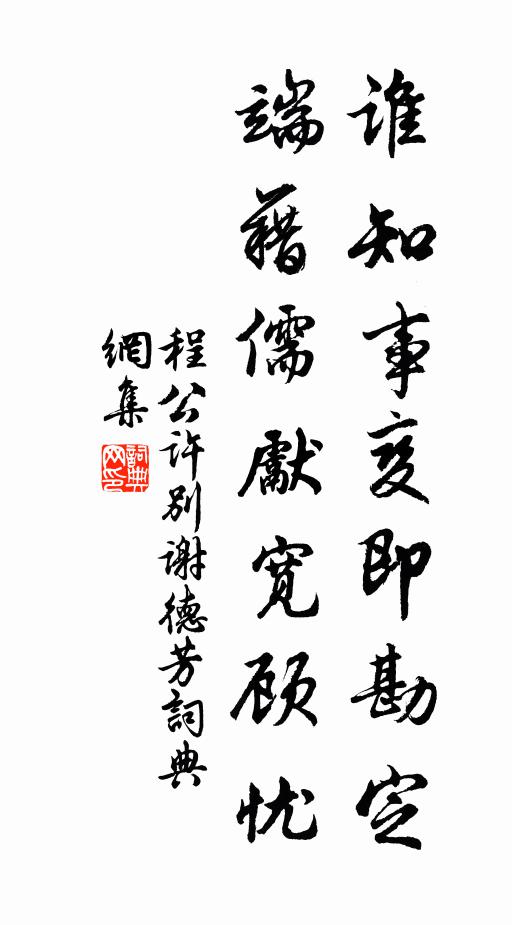 谁知事变即勘定
端藉儒献宽顾忧
程公许别谢德芳词典
網集
詞典網印